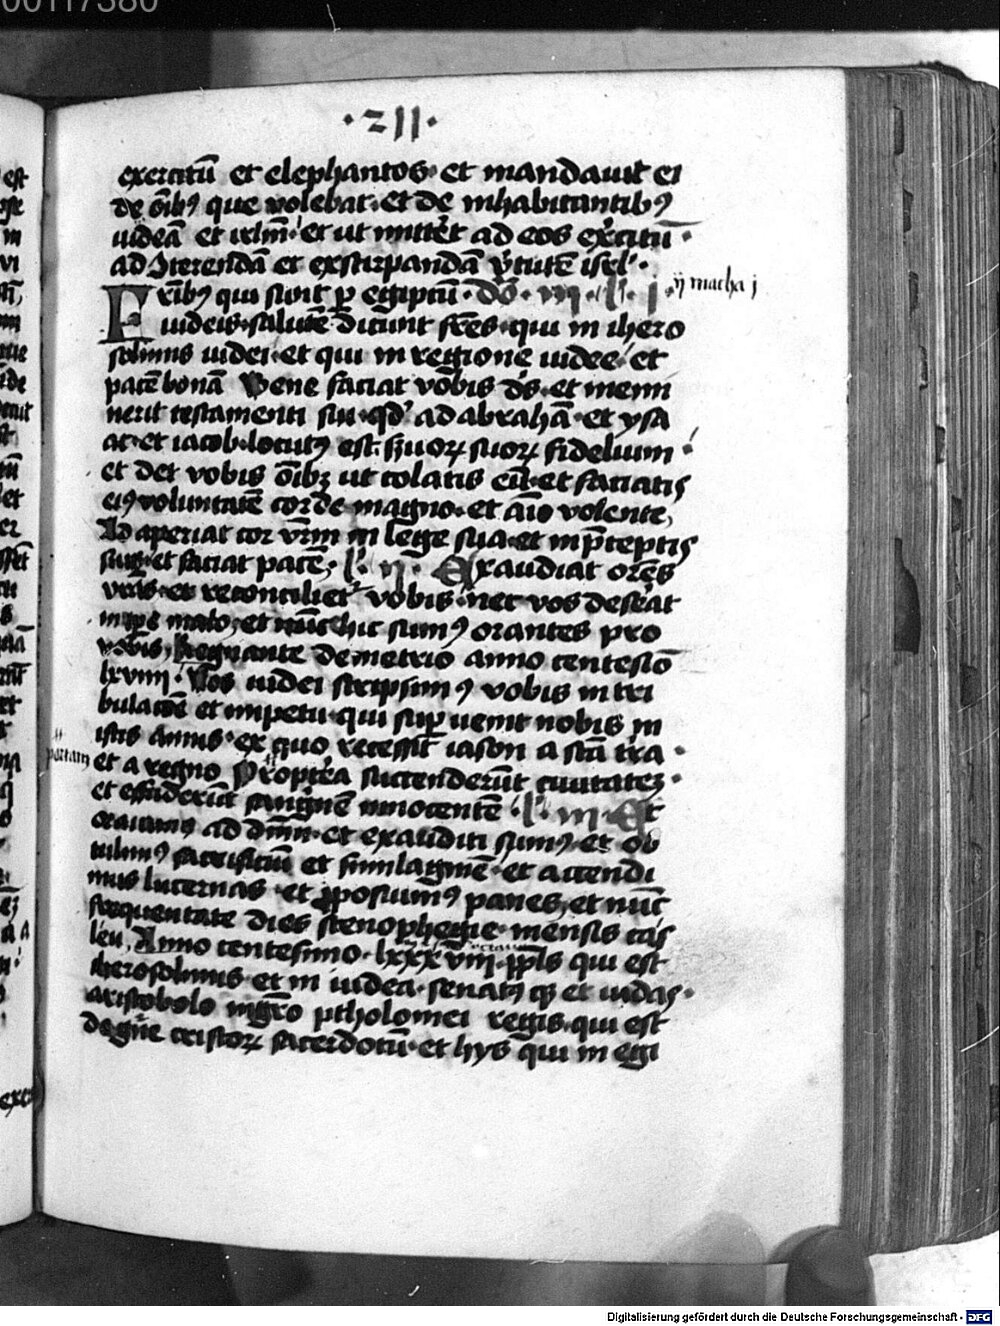 00117380
·211·
exercitū et elephantos· et mandauit ei
de oīb9 que volebat· et de inhabitantib9
iudeā et irlm̄· et ut mitt̄et ad eos ex̄citū·
ad 9terendā et exstirpandā v̄tutē isrl'·
Frīb9 qui sunt p̱ egiptū· dō· m· l· j· ij macha j
iudeis· salutē dicunt fr̄es· qui in ihero
solimis iudei· et qui in regione iudee· et
pacē bonā Bene faciat vobis ds̄· et memi
nerit testamenti sui· qd' ad abrahā· et ysa
ac· et iacob· locut9 est· s̄uoꝝ suoꝝ fidelium·
et det vobis oībꝫ ut colatis eū· et faciatis
ei9 voluntatē corde magno· et aīo volente,
Adaperiat cor vr̄m in lege sua· et in p̄ceptis
suis· et faciat pacē· l· ij· Exaudiat or̄es
vr̄as· et reconciliet' vobis· nec vos des̄eat
in tp̄e malo, et nūc hic sum9 orantes pro
vobis, Regnante demetrio anno centesiō
lxviiij· Nos iudei scripsim9 vobis in tri
bulatōe et impetu· qui sup̱ uenit nobis in
istis annis· ex quo recessit iason a sc̄ā tr̄a·
et a regno Propt̄ea succenderūt ciuitateꝫ·
portam
et effuderūt sanguinē innocentē· l· iij· Et
orauimus ad dn̄m· et exauditi sum9· et ob
tulim9 sacrificiū et similaginē· et accendi
mus lucernas· et p̱posuim9 panes, et nūc
frequentate dies scenophegie· mensis cas
leu, Anno centesimo· lxxxviij· pp̄ls qui est
hierosolimis· et in iudea· senat9 qꝫ et iudas·
aristobolo mḡro ptholomei regis· qui est
de gn̄e cristoꝝ sacerdotū· et hys qui in egi
Digitalisierung gefördert durch die Deutsche Forschungsgemeinschaft - DFG